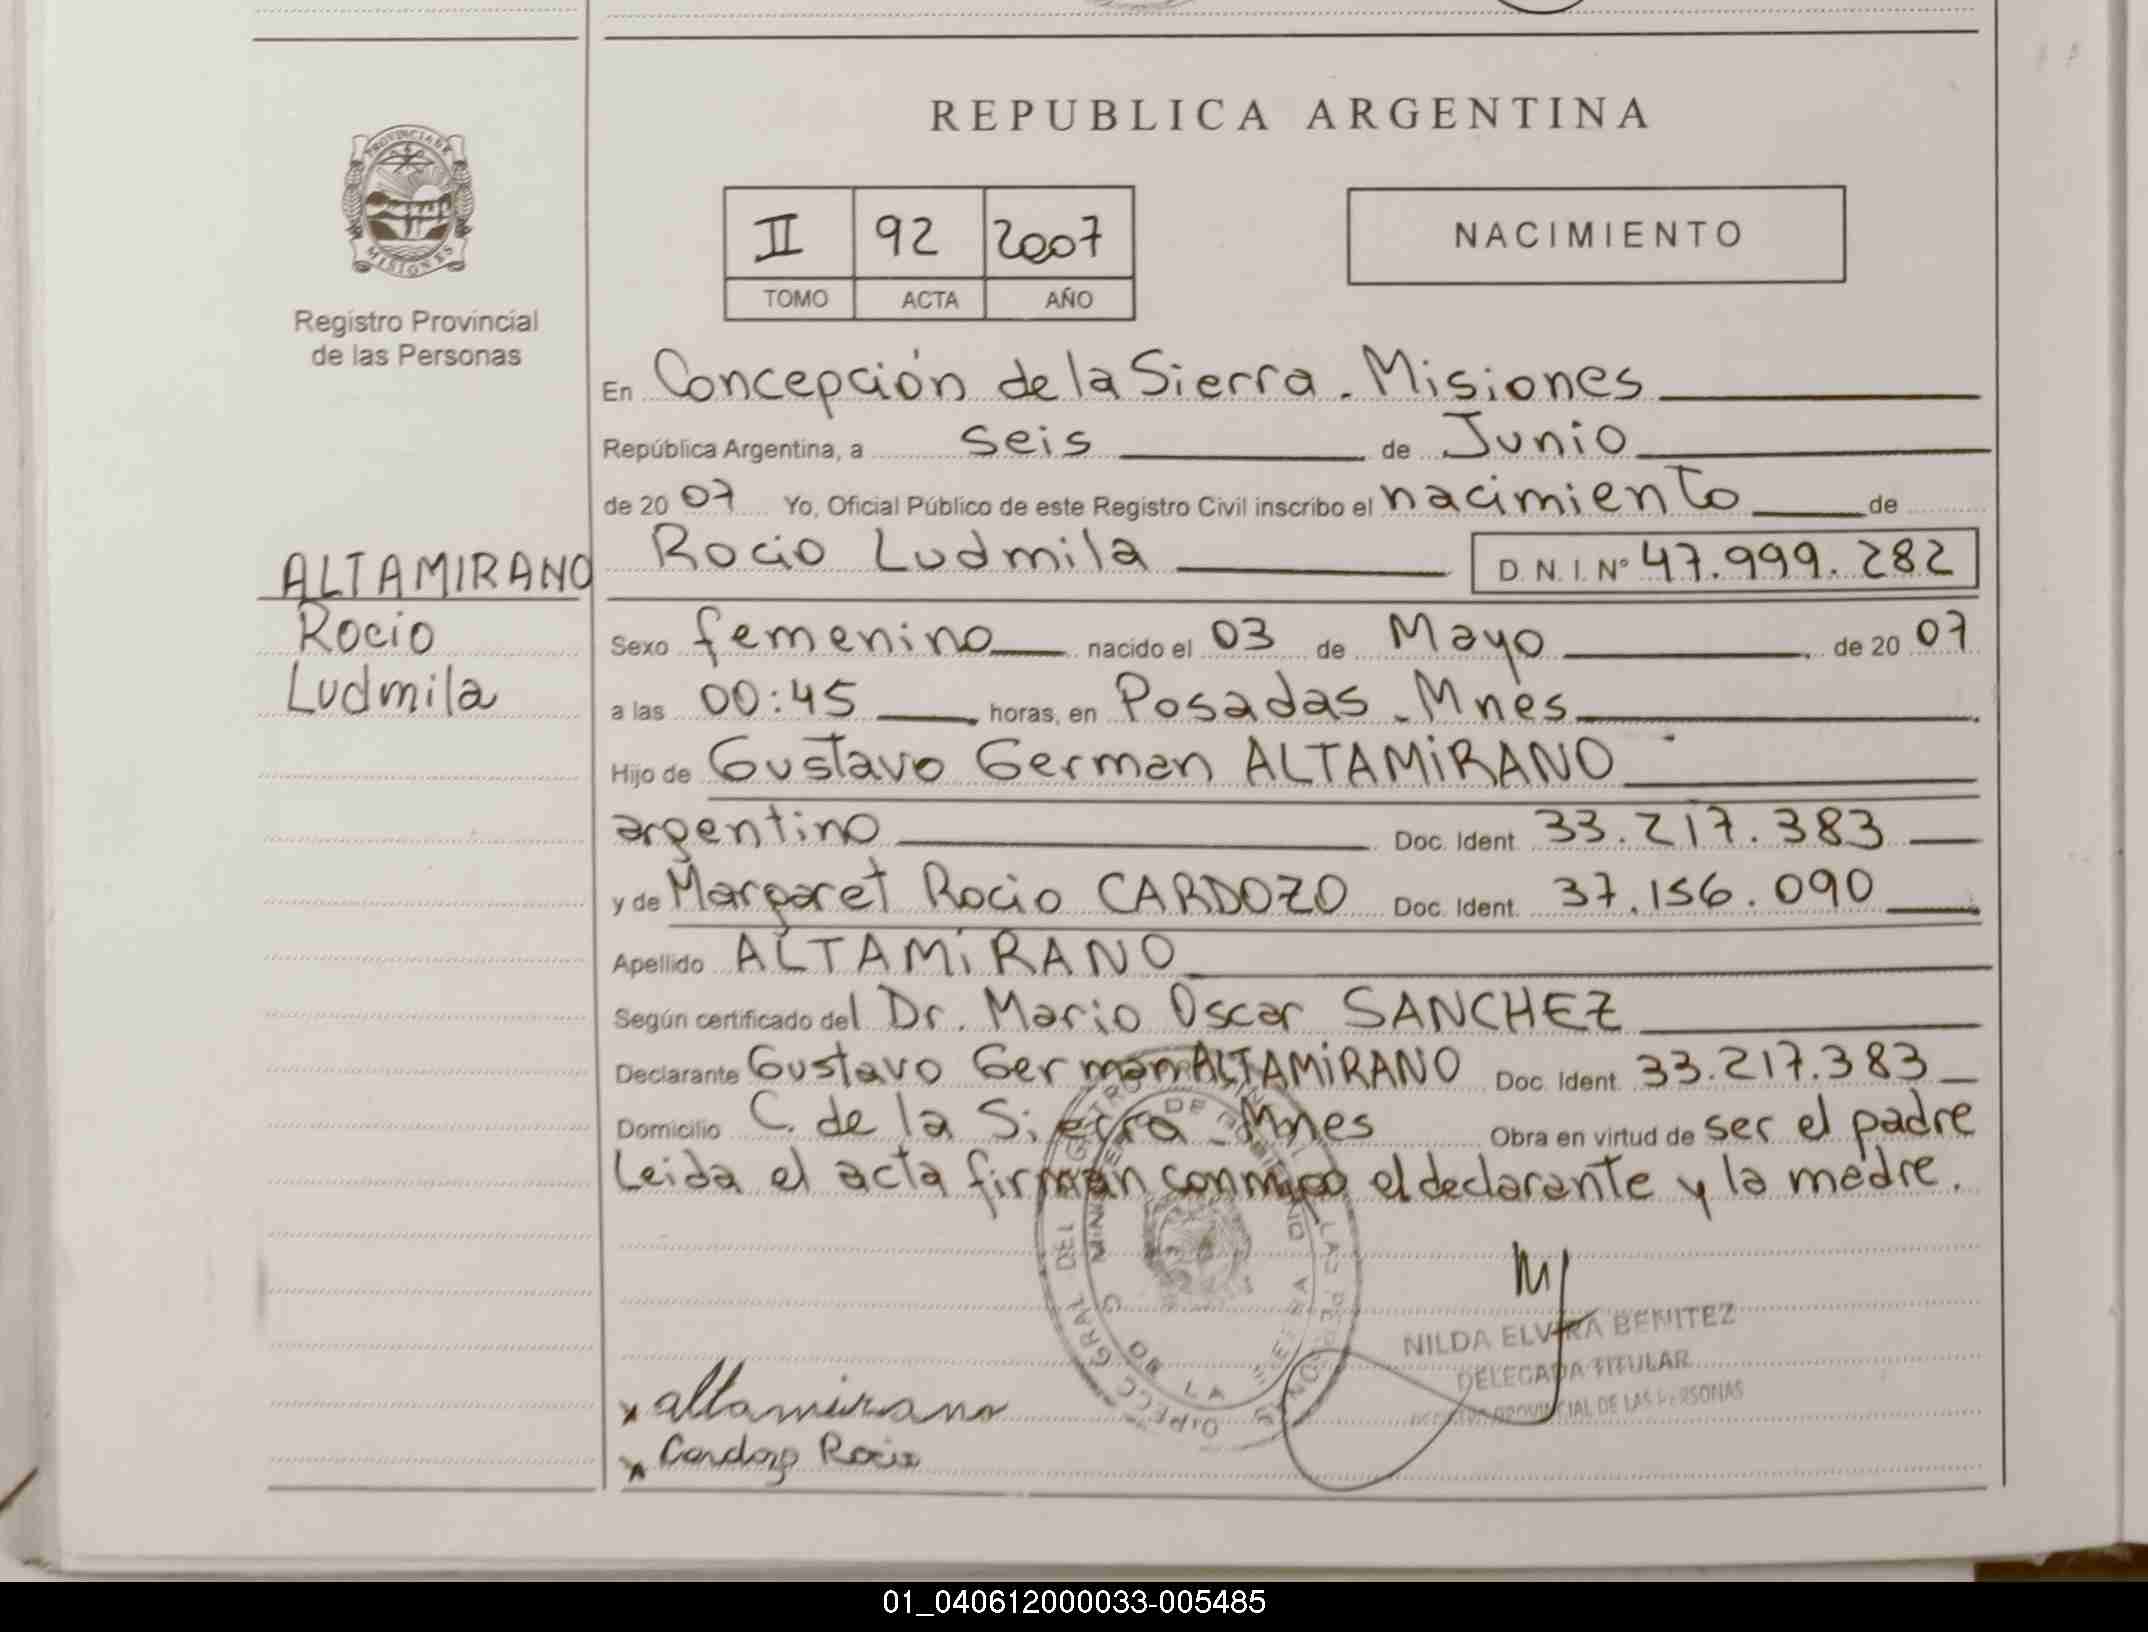 REPUBLICA ARGENTINA
PROVINCIA DE
MISIONES
Registro Provincial
de las Personas
II 92 2007
TOMO ACTA AÑO
NACIMIENTO
En Concepción de la Sierra - Misiones
República Argentina, a seis de Junio
de 20 07 Yo, Oficial Público de este Registro Civil inscribo el nacimiento de
Rocio Ludmila D. N. I. Nº 47.999.282
ALTAMIRANO
Rocio
Ludmila
Sexo femenino nacido el 03 de Mayo de 20 07
a las 00:45 horas, en Posadas - Mnes
Hijo de Gustavo German ALTAMIRANO
argentino Doc. Ident. 33.217.383
y de Margaret Rocio CARDOZO Doc. Ident. 37.156.090
Apellido ALTAMIRANO
Según certificado del Dr. Mario Oscar SANCHEZ
Declarante Gustavo German ALTAMIRANO Doc. Ident. 33.217.383
Domicilio C. de la Sierra - Mnes Obra en virtud de ser el padre
Leida el acta firman conmigo el declarante y la madre.
NILDA ELVIRA BENITEZ
DELEGADA TITULAR
REGISTRO PROVINCIAL DE LAS PERSONAS
x altamirano
x Cardozo Rocio
01_040612000033-005485